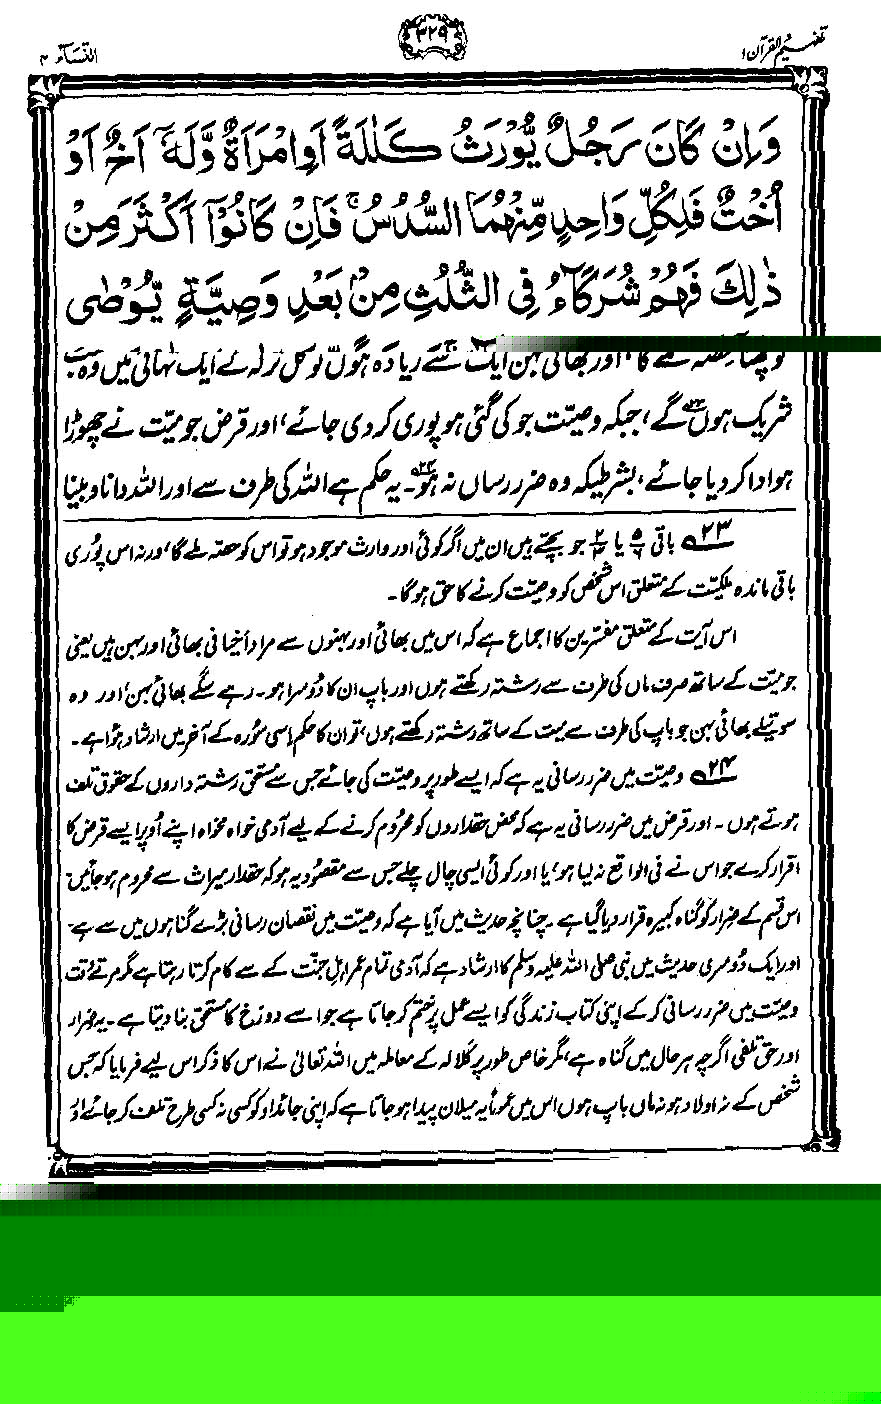 تفہیم القرآن ۱
۳۲۹
النسآء ۴
وَاِنْ كَانَ رَجُلٌ يُّوْرَثُ كَلٰلَةً اَوِ امْرَاَةٌ وَّلَهٗۤ اَخٌ اَوْ
اُخْتٌ فَلِكُلِّ وَاحِدٍ مِّنْهُمَا السُّدُسُ ۚ فَاِنْ كَانُوْۤا اَكْثَرَ مِنْ
ذٰلِكَ فَهُمْ شُرَكَآءُ فِى الثُّلُثِ مِنْۢ بَعْدِ وَصِيَّةٍ يُّوْصٰى
اور بھائی بہن ایک سے زیادہ ہوں تو کل ترکہ کے ایک تہائی میں وہ سب
شریک ہوں گے، جبکہ وصیّت جو کی گئی ہو پوری کر دی جائے، اور قرض جو میّت نے چھوڑا
ہو ادا کر دیا جائے، بشرطیکہ وہ ضرر رساں نہ ہو۔ یہ حکم ہے اللہ کی طرف سے اور اللہ دانا و بینا
۲۳ باقی ۵/۶ یا ۲/۳ جو بچتے ہیں ان میں اگر کوئی اور وارث موجود ہو تو اس کو حصّہ ملے گا، ورنہ اس پُوری
باقی ماندہ ملکیّت کے متعلق اس شخص کو وصیّت کرنے کا حق ہوگا۔
اس آیت کے متعلق مفسّرین کا اجماع ہے کہ اس میں بھائی اور بہنوں سے مراد اَخیافی بھائی اور بہن ہیں یعنی
جو میّت کے ساتھ صرف ماں کی طرف سے رشتہ رکھتے ہوں اور باپ ان کا دُوسرا ہو۔ رہے سگے بھائی بہن، اور وہ
سوتیلے بھائی بہن جو باپ کی طرف سے میت کے ساتھ رشتہ رکھتے ہوں، تو ان کا حکم اسی سُورہ کے آخر میں ارشاد ہوا ہے۔
۲۴ وصیّت میں ضرر رسانی یہ ہے کہ ایسے طور پر وصیّت کی جائے جس سے مستحق رشتہ داروں کے حقوق تلف
ہوتے ہوں۔ اور قرض میں ضرر رسانی یہ ہے کہ محض حقداروں کو محرُوم کرنے کے لیے آدمی خواہ مخواہ اپنے اُوپر ایسے قرض کا
اقرار کرے جو اس نے فی الواقع نہ لیا ہو، یا اور کوئی ایسی چال چلے جس سے مقصُود یہ ہو کہ حقدار میراث سے محروم ہو جائیں۔
اس قسم کے ضرار کو گناہ کبیرہ قرار دیا گیا ہے۔ چنانچہ حدیث میں آیا ہے کہ وصیّت میں نقصان رسانی بڑے گناہوں میں سے ہے۔
اور ایک دُوسری حدیث میں نبی صلی اللہ علیہ وسلم کا ارشاد ہے کہ آدمی تمام عمر اہلِ جنّت کے سے کام کرتا رہتا ہے مگر مرتے وقت
وصیّت میں ضرر رسانی کر کے اپنی کتاب زندگی کو ایسے عمل پر ختم کر جاتا ہے جو اسے دوزخ کا مستحق بنا دیتا ہے۔ یہ ضرار
اور حق تلفی اگرچہ ہر حال میں گناہ ہے، مگر خاص طور پر کلالہ کے معاملہ میں اللہ تعالیٰ نے اس کا ذکر اس لیے فرمایا کہ جس
شخص کے نہ اولاد ہو نہ ماں باپ ہوں اس میں عموماً یہ میلان پیدا ہو جاتا ہے کہ اپنی جائداد کو کسی نہ کسی طرح تلف کر جائے اور